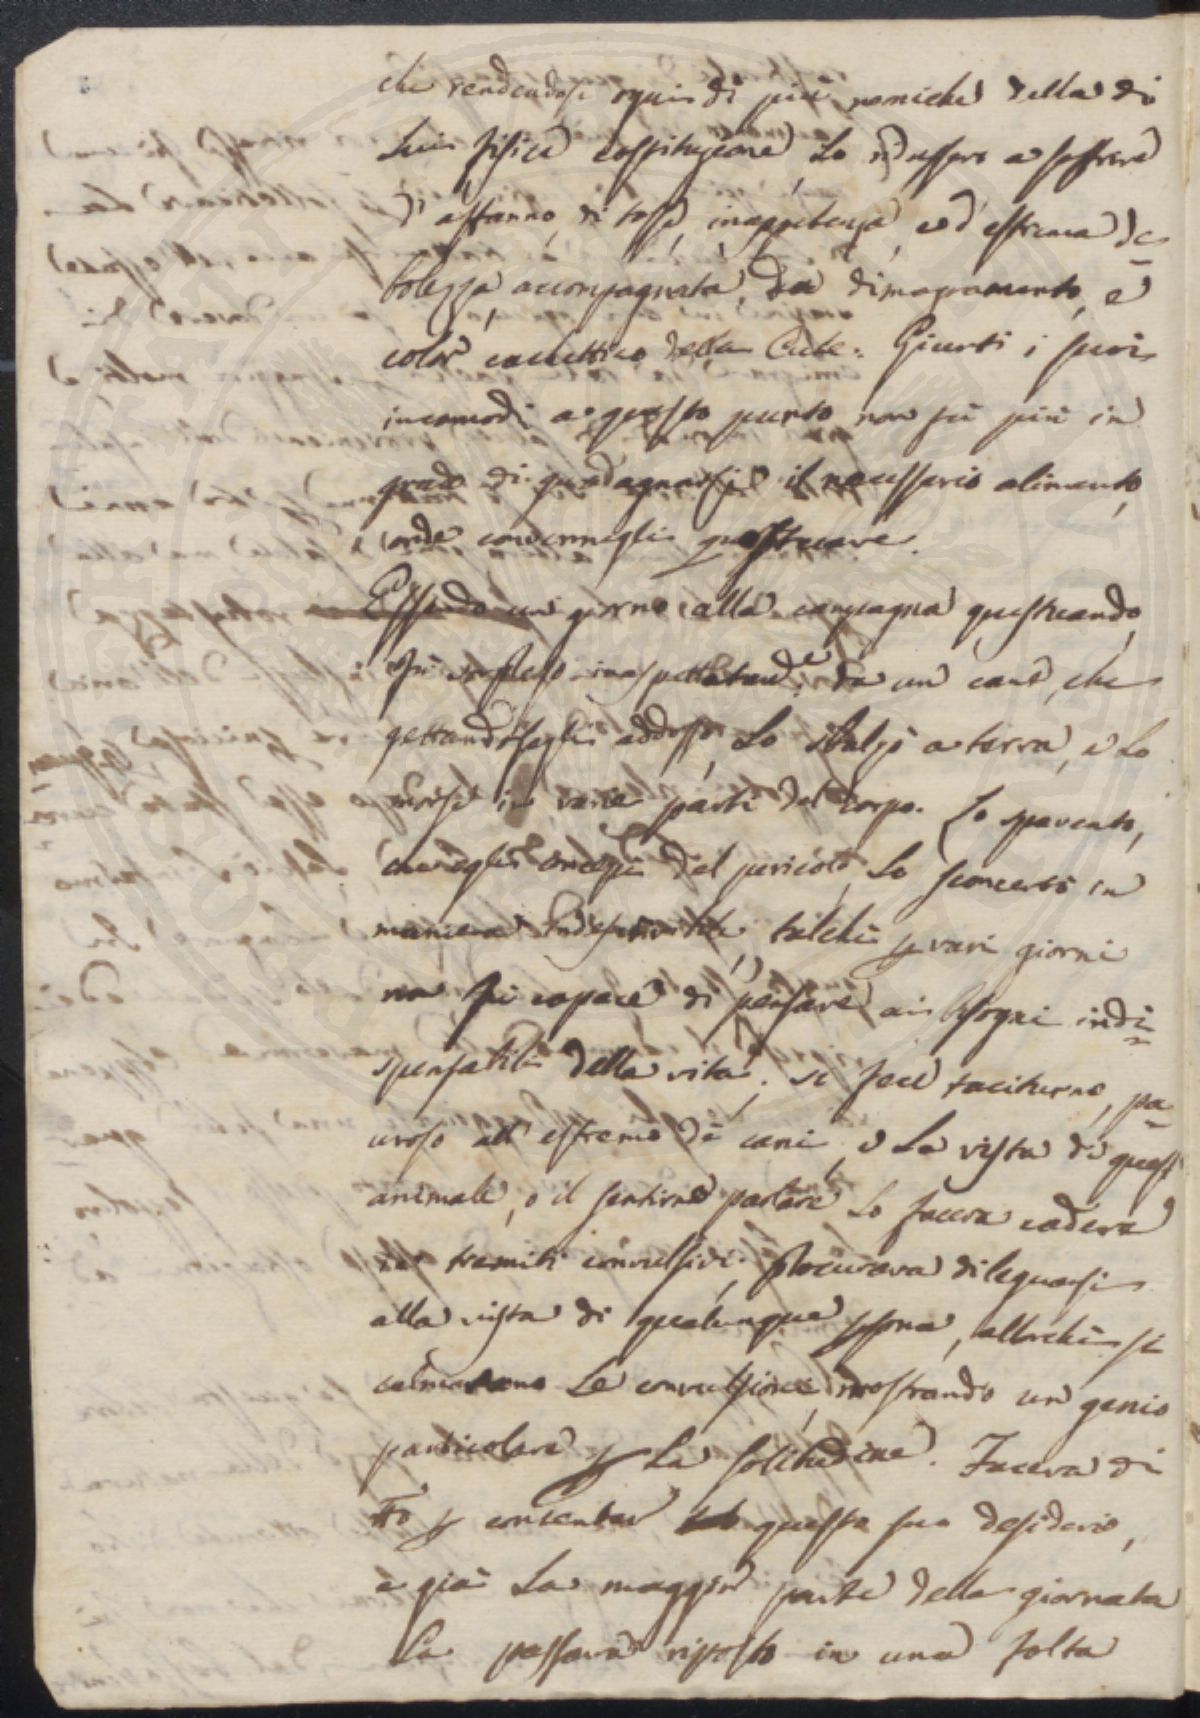 che rendendosi ogni dì più nemiche della di
Lui fisica costituzione, Lo ridussero a soffrire
d'affanno, di tosse, inappetenza, ed estrema de=
bolezza, accompagnata da dimagramento, e
color cachettico della Cute. Giunti i suoi
incomodi a questo punto non fù più in
grado di guadagnarsi il necessario alimento,
onde convennegli questuare.
Essendo un giorno alla campagna questuando,
fù sorpreso inaspettatamᵉ da un cane, che
gettandosegli addosso, Lo sbalzò a terra, e Lo
morse in varie parti del corpo. Lo spavento,
che egli concepì del pericolo, Lo sconcertò in
maniera talchè p vari giorni
non fù capace di pensare ai bisogni indi=
spensabili della vita; si fece taciturno, pa=
uroso all'estremo de' cani, e La vista di quest'
animale, o il sentirne parlare Lo faceva cadere
in tremiti convulsivi; Procurava dileguarsi
alla vista di qualunque psona, allorchè si
calmavano Le convulsioni, mostrando un genio
particolare p La solitudine. Faceva di
tto p contentar questo suo desiderio,
e già La maggior parte della giornata
La passava riposto in una folta